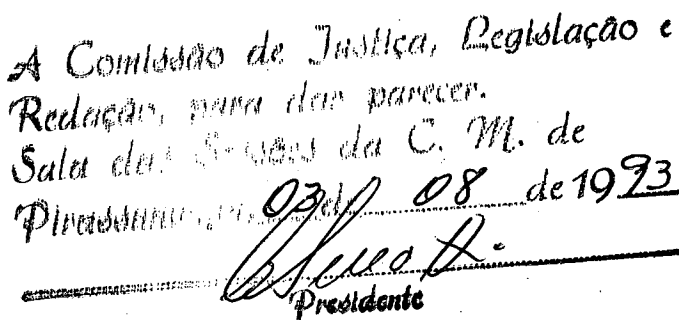 A Comissão de Justiça, Legislação e
Redação, para dar parecer.
Sala das Sessões da C. M. de
Pirassununga, 03 de 08 de 1993
Presidente